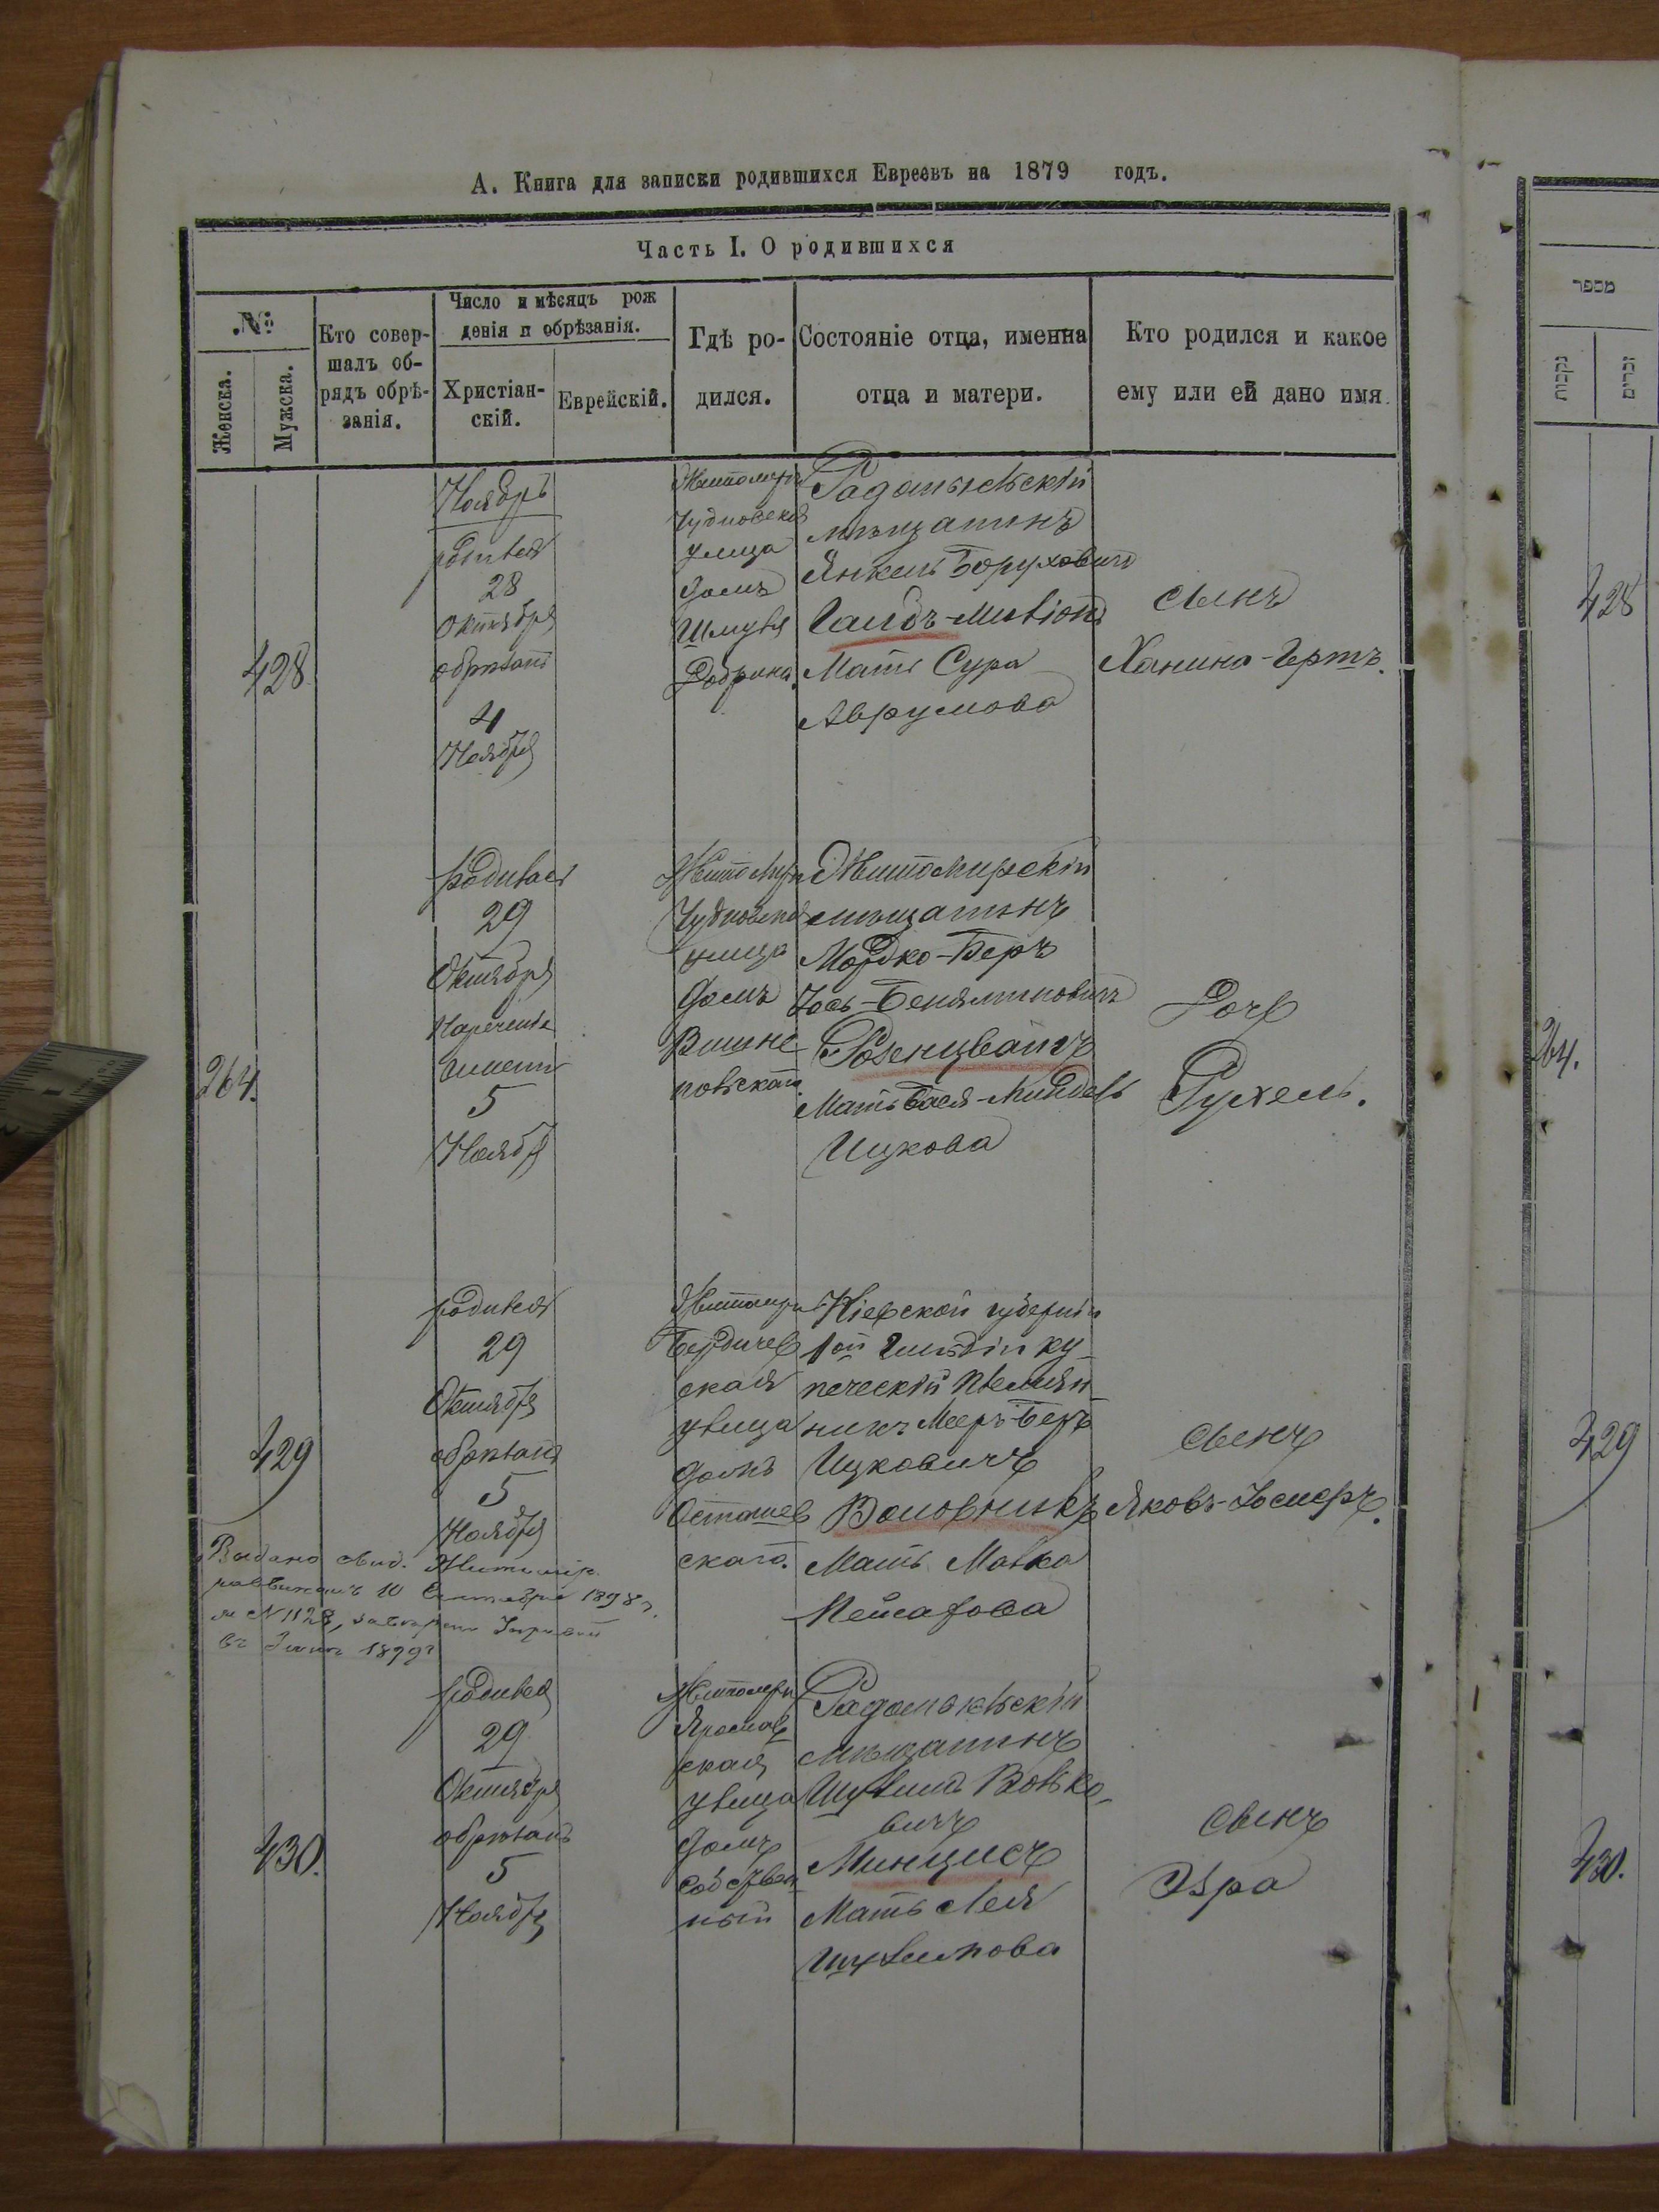 А. Книга для записки родившихся Евреевъ на 1879 годъ.
Часть I. О родившихся
№
Женска.
Мужска.
Кто совер-
шалъ об-
рядъ обрѣ-
занія.
Число и мѣсяцъ рож
денія и обрѣзанія.
Христіан-
скій.
Еврейскій.
Гдѣ ро-
дился.
Состояніе отца, именна
отца и матери.
Кто родился и какое
ему или ей дано имя.
428
Ноябрь
родился
28
Октября
обрѣзанъ
4
Ноября
Житомиръ
Чудновская
улица
домъ
Шмуля
Радомысльскій
мѣщанинъ
Янкель Боруховичъ
Мать Сура
Аврумова
Сынъ
Ханина-Гершъ.
264.
родилась
29
Октября
Нареченіе
имени
5
Ноября
Житомиръ
Чудновская
улица
домъ
Вишне-
повскаго.
Житомирскій
мѣщанинъ
Мордко-Беръ
Іось-Беняминовичъ
Розенцвайгъ
Мать Бася-Миндель
Ицкова
Дочь
Рухель.
429
родился
29
Октября
обрѣзанъ
5
Ноября
Житомиръ
Бердичев
ская
улица
домъ
скаго.
Кіевской губерніи
1ой Гильдіи ку-
печескій племян-
никъ Мееръ-Беръ
Ицковичъ
Воловникъ
Мать Малка
Пейсахова
Сынъ
Яковъ-Іосиеръ.
Выдано свид. Житомір.
раввиномъ 10 Сентября 1898 г.
за № 1128,
въ 1899 г
430.
родился
29
Октября
обрѣзанъ
5
Ноября
Житомиръ
ская
улица
домъ
собствен
ный
Радомысльскій
мѣщанинъ
Шулимъ Волько-
вичъ
Минцисъ
Мать Лея
Шулимова
Сынъ
Эзра
מספר
נקבות
זכרים
428
264.
429
430.